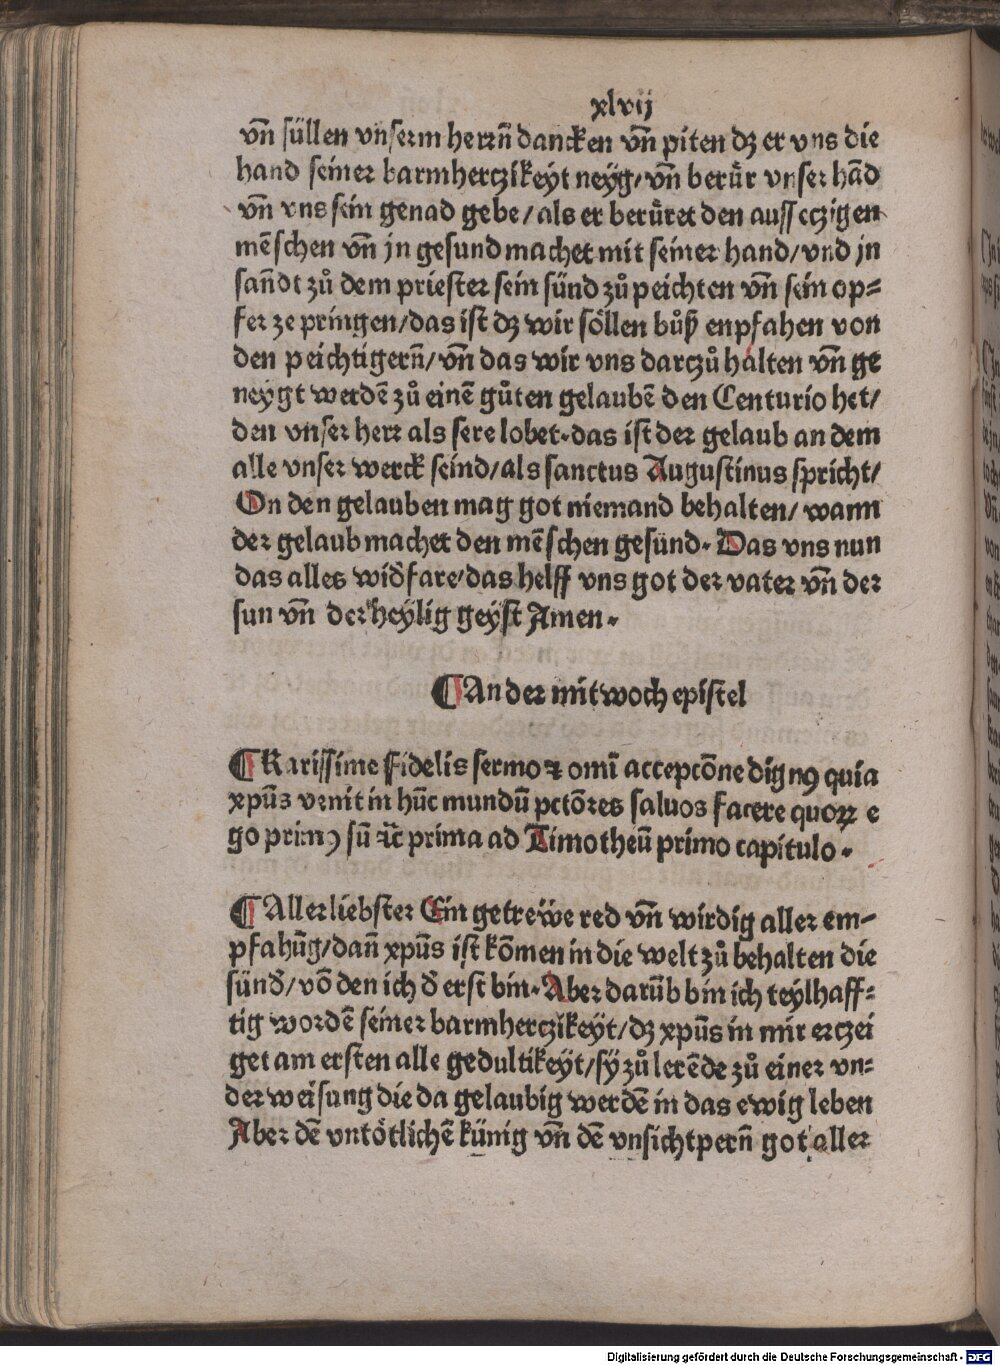 xlvij
vn̄ süllen vnserm herrn̄ dancken vn̄ piten dz er vns die
hand seiner barmherczikeyt neyg/ vn̄ berůr vnser hād
vn̄ vns sein genad gebe/ als er berůret den ausseczigen
mēschen vn̄ jn gesund machet mit seiner hand/ vnd jn
sann̄dt zů dem priester sein sünd zů peichten vn̄ sein op=
fer ze pringen/ das ist dz wir söllen bůß enpfahen von
den peichtigern̄/ vn̄ das wir vns darczů halten vn̄ ge
neygt werdē zů einē gůten gelaubē den Centurio het/
den vnser herr als sere lobet. das ist der gelaub an dem
alle vnser werck seind/ als sanctus Augustinus spricht/
On den gelauben mag got niemand behalten/ wann
der gelaub machet den mēschen gesünd. Das vns nun
das alles widfare/ das helff vns got der vater vn̄ der
sun vn̄ der heylig geyst Amen.
¶ An der mitwoch epistel
¶ Karissime Fidelis sermo ⁊ omī accepcōne dignꝰ quia
xp̄us venit in hūc mundū pctōres saluos facere quoꝝ e
go primꝰ sū ⁊c̄ prima ad Timotheū primo capitulo.
¶ Allerliebster Ein getreẅe red vn̄ wirdig aller em=
pfahūg/ dan̄ xp̄us ist kōmen in die welt zů behalten die
sünd̄/ vō den ich d̄ erst bin. Aber darūb bin ich teylhaff=
tig wordē seiner barmherczikeyt/ dz xp̄us in mir erczei
get am ersten alle gedultikeyt/ sy zů lerēde zů einer vn=
der weisung die da gelaubig werdē in das ewig leben
Aber dē vntötlichē künig vn̄ dē vnsichtpern̄ got aller
Digitalisierung gefördert durch die Deutsche Forschungsgemeinschaft - DFG